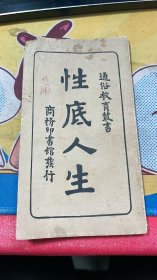 通俗教育叢書
性底人生
商務印書館發行